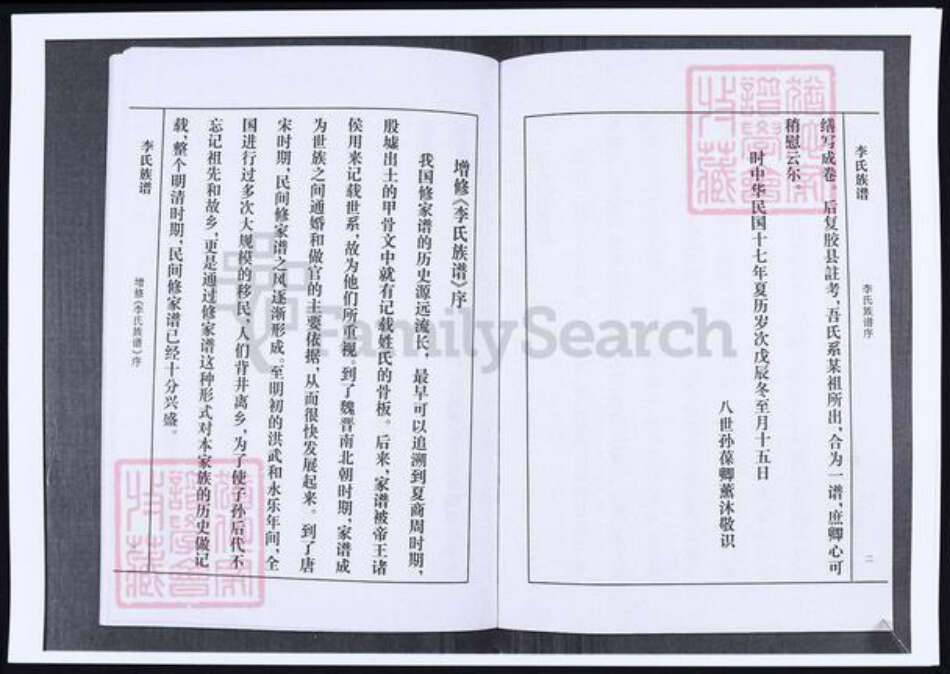 李氏族谱
李氏族谱序
二
缮写成卷。后复胶县註考，吾氏系某祖所出，合为一谱，庶卿心可
稍慰云尔。
时中华民国十七年夏历岁次戊辰冬至月十五日
八世孙葆卿薰沐敬识
增修《李氏族谱》序
我国修家谱的历史源远流长，最早可以追溯到夏商周时期，
殷墟出土的甲骨文中就有记载姓氏的骨板。后来，家谱被帝王诸
侯用来记载世系，故为他们所重视。到了魏晋南北朝时期，家谱成
为世族之间通婚和做官的主要依据，从而很快发展起来。到了唐
宋时期，民间修家谱之风逐渐形成。至明初的洪武和永乐年间，全
国进行过多次大规模的移民，人们背井离乡，为了使子孙后代不
忘记祖先和故乡，更是通过修家谱这种形式对本家族的历史做记
载，整个明清时期，民间修家谱已经十分兴盛。
李氏族谱
增修《李氏族谱》序
FamilySearch